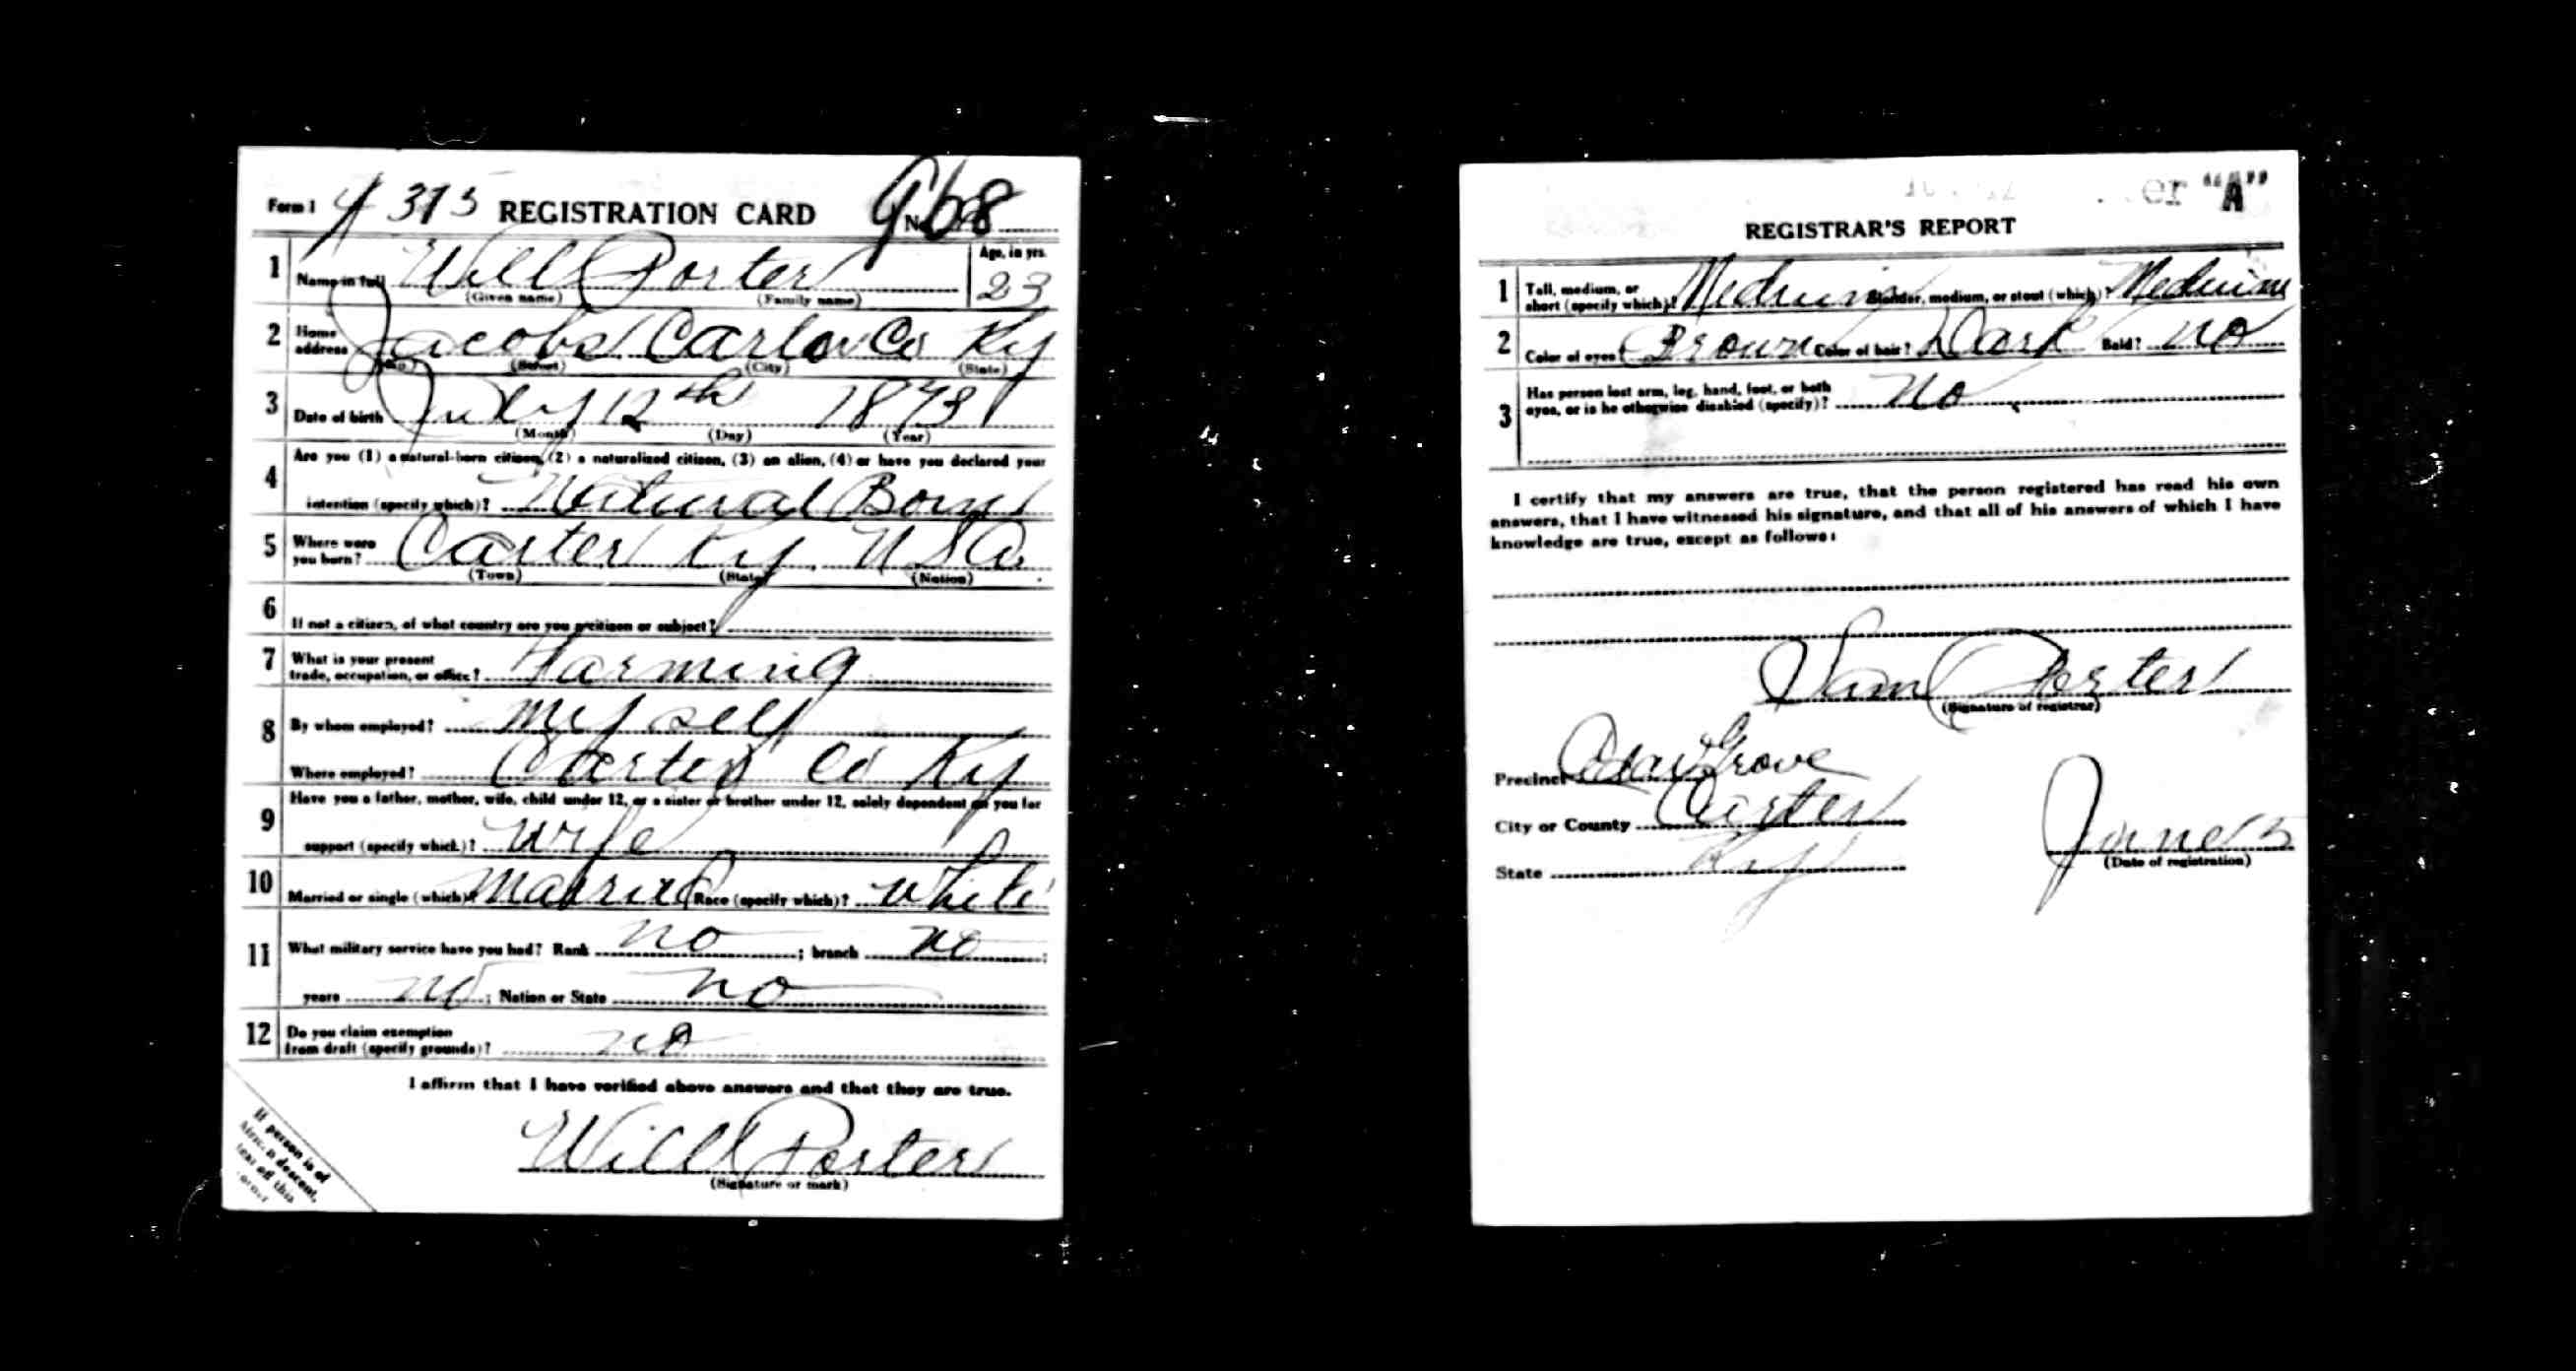 Form 1 4 375 REGISTRATION CARD No. 968
1 Name in full Will Porter Age, in yrs. 23
(Given name) (Family name)
2 Home address Jacobs Carter Co Ky
(No.) (Street) (City) (State)
3 Date of birth July 12th 1893
(Month) (Day) (Year)
4 Are you (1) a natural-born citizen, (2) a naturalized citizen, (3) an alien, (4) or have you declared your
intention (specify which)? Natural Born
5 Where were you born? Carter Ky. USA
(Town) (State) (Nation)
6 If not a citizen, of what country are you a citizen or subject?
7 What is your present trade, occupation, or office? Farming
8 By whom employed? myself
Where employed? Carter Co Ky
9 Have you a father, mother, wife, child under 12, or a sister or brother under 12, solely dependent on you for
support (specify which)? Wife
10 Married or single (which)? Married Race (specify which)? White
11 What military service have you had? Rank no ; branch no ;
years no ; Nation or State no
12 Do you claim exemption from draft (specify grounds)? no
I affirm that I have verified above answers and that they are true.
Will Porter
(Signature or mark)
If person is of
descent,
tear off this
corner
"A"
REGISTRAR'S REPORT
1 Tall, medium, or short (specify which)? Medium Slender, medium, or stout (which)? Medium
2 Color of eyes? Brown Color of hair? Dark Bald? No
3 Has person lost arm, leg, hand, foot, or both
eyes, or is he otherwise disabled (specify)? No
I certify that my answers are true, that the person registered has read his own
answers, that I have witnessed his signature, and that all of his answers of which I have
knowledge are true, except as follows:
Sam Porter
(Signature of registrar)
Precinct Grove
City or County Carter
State Ky
June 5
(Date of registration)